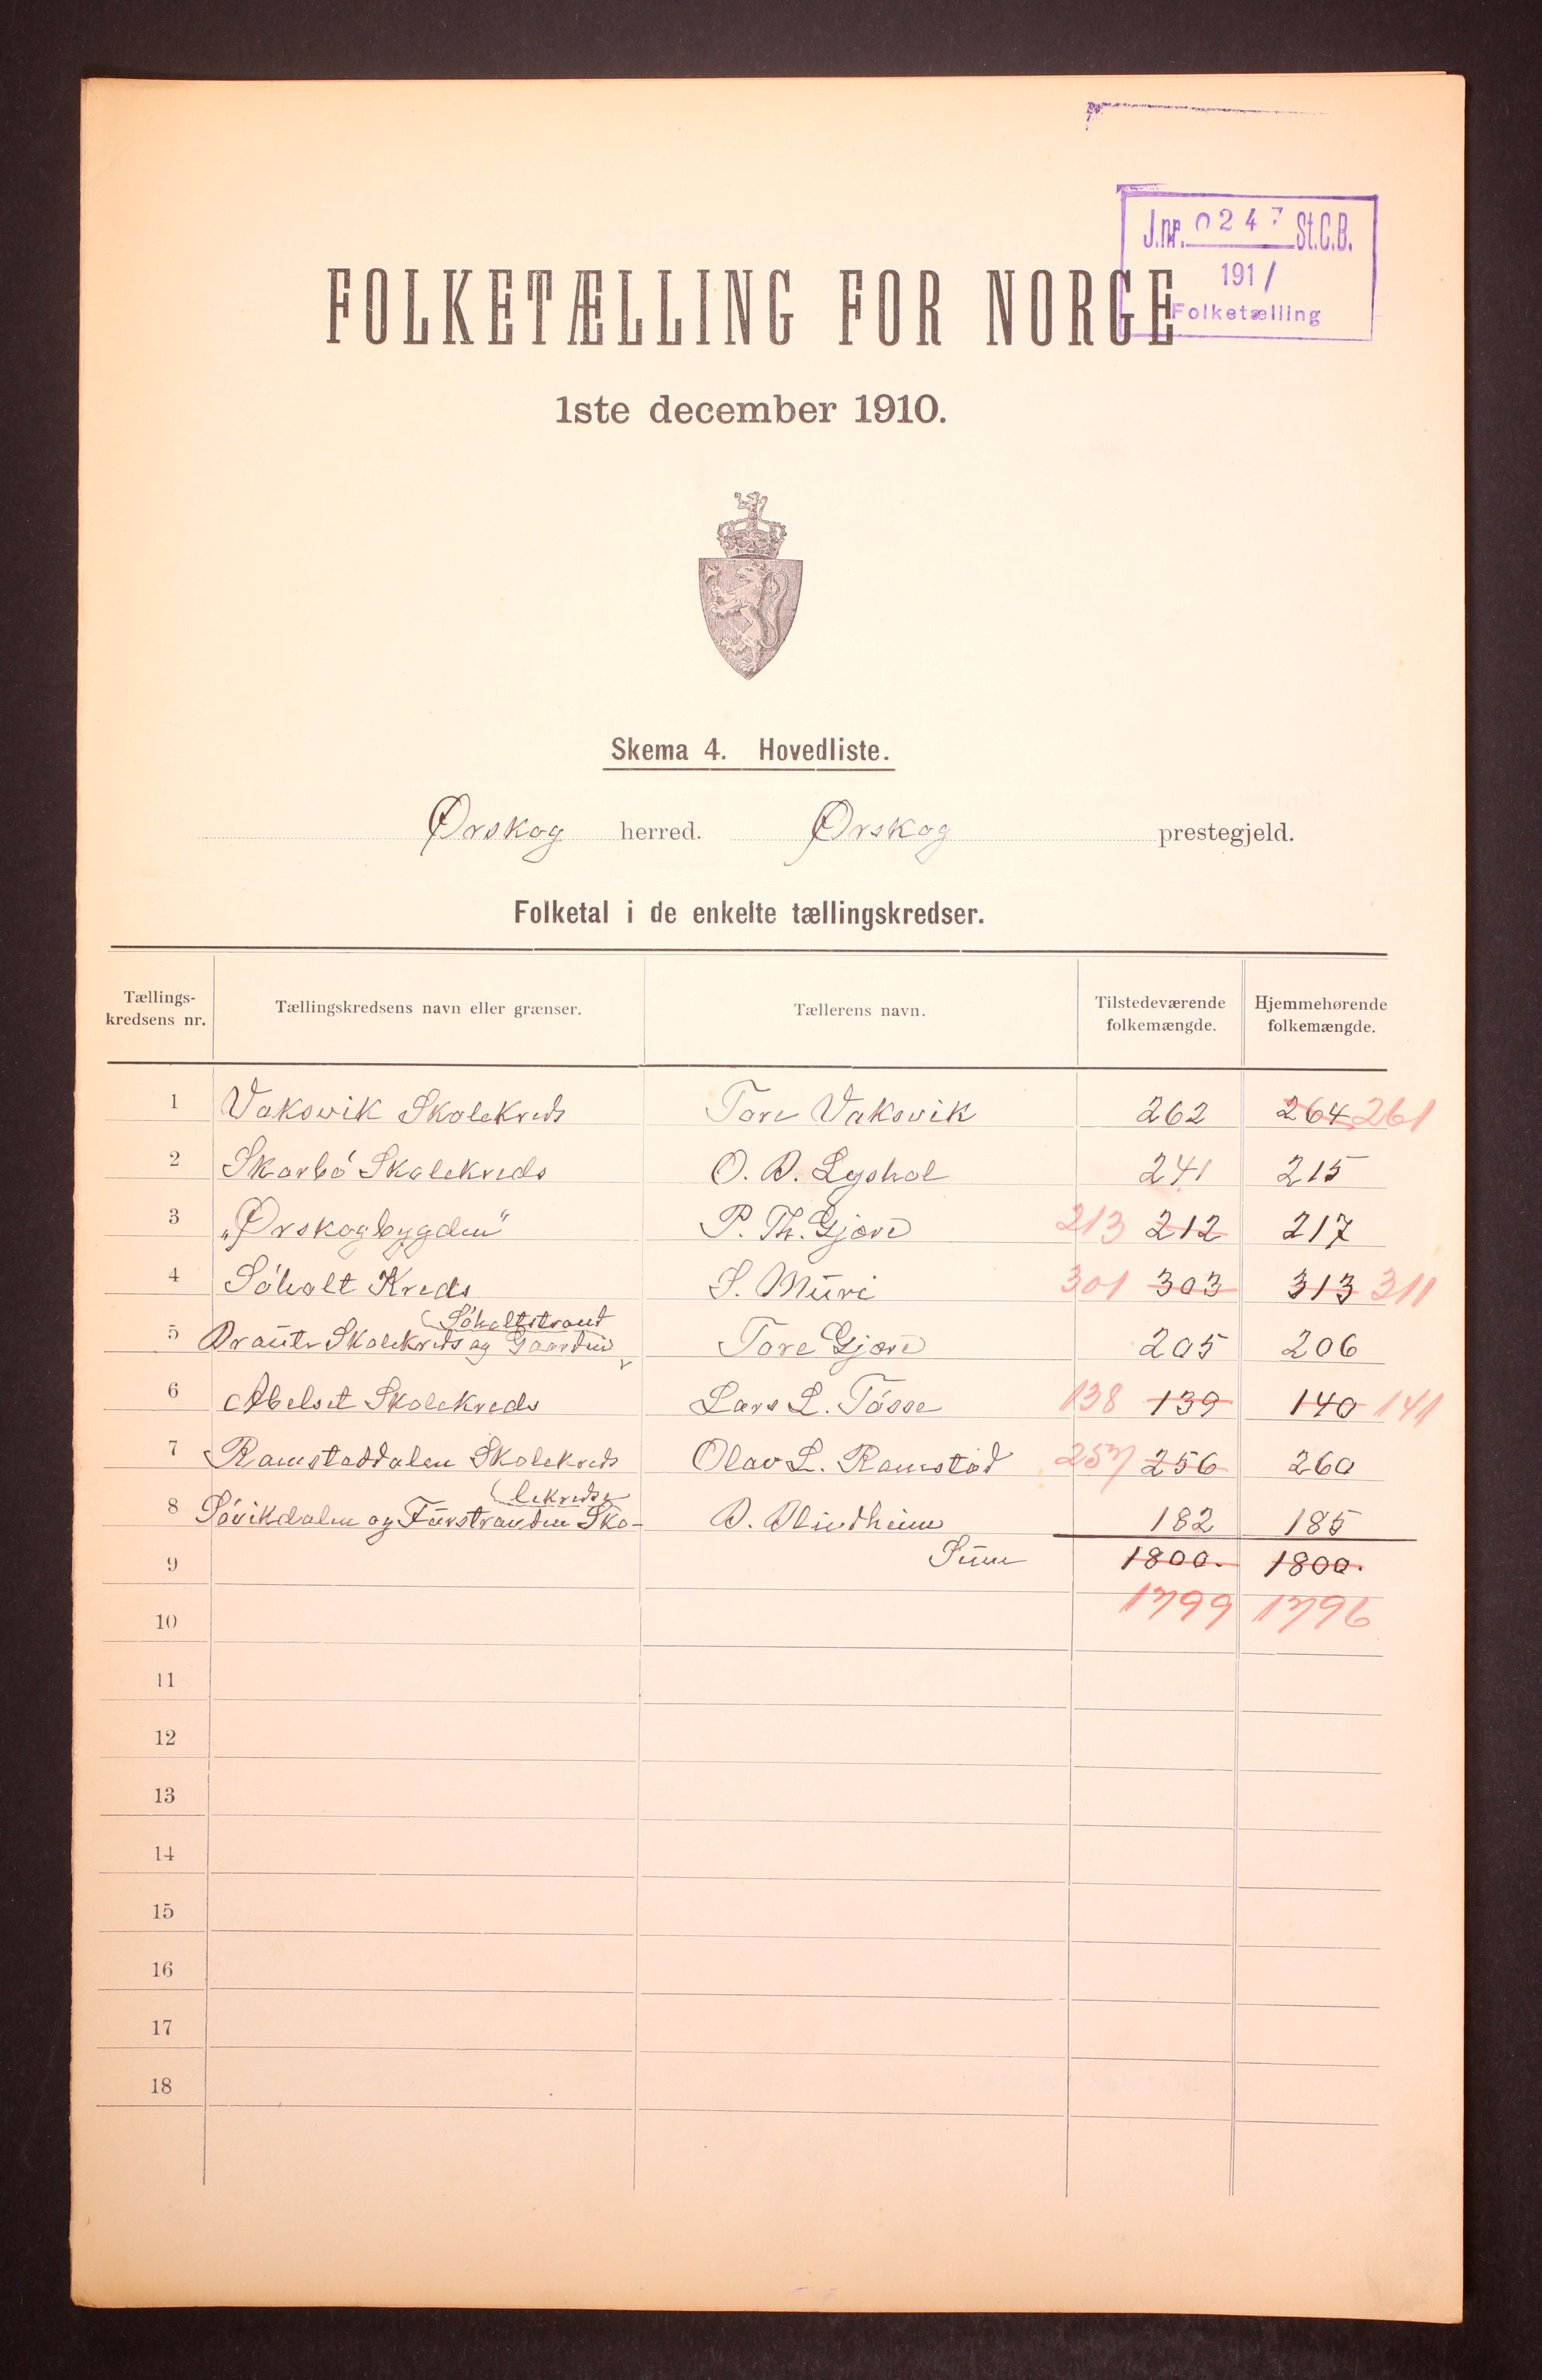 J.nr. 0247 St.C.B.
1911
Folketælling
FOLKETÆLLING FOR NORGE
1ste december 1910.
Skema 4. Hovedliste.
Ørskog herred. Ørskog prestegjeld.
Folketal i de enkelte tællingskredser.
Tællings-
kredsens nr.
Tællingskredsens navn eller grænser.
Tællerens navn.
Tilstedeværende
folkemængde.
Hjemmehørende
folkemængde.
1 Vaksvik Skolekreds Tore Vaksvik 262 264 261
2 Skarbö Skolekreds O. A. Lyshol 241 215
3 „Ørskogbygden" P. Th. Gjære 213 212 217
4 Söholt Kreds S. Muri 301 303 313 311
(Söholtstrand
5 Skolekreds og Gaarden Tore Gjære 205 206
6 Abelset Skolekreds Lars L. Tösse 138 139 140 141
7 Ramstaddalen Skolekreds Olav L. Ramstad 257 256 260
(lekredse
8 Sövikdalen og Fürstranden Sko- A. Blindheim 182 185
9 Sum 1800. 1800.
10 1799 1796
11
12
13
14
15
16
17
18